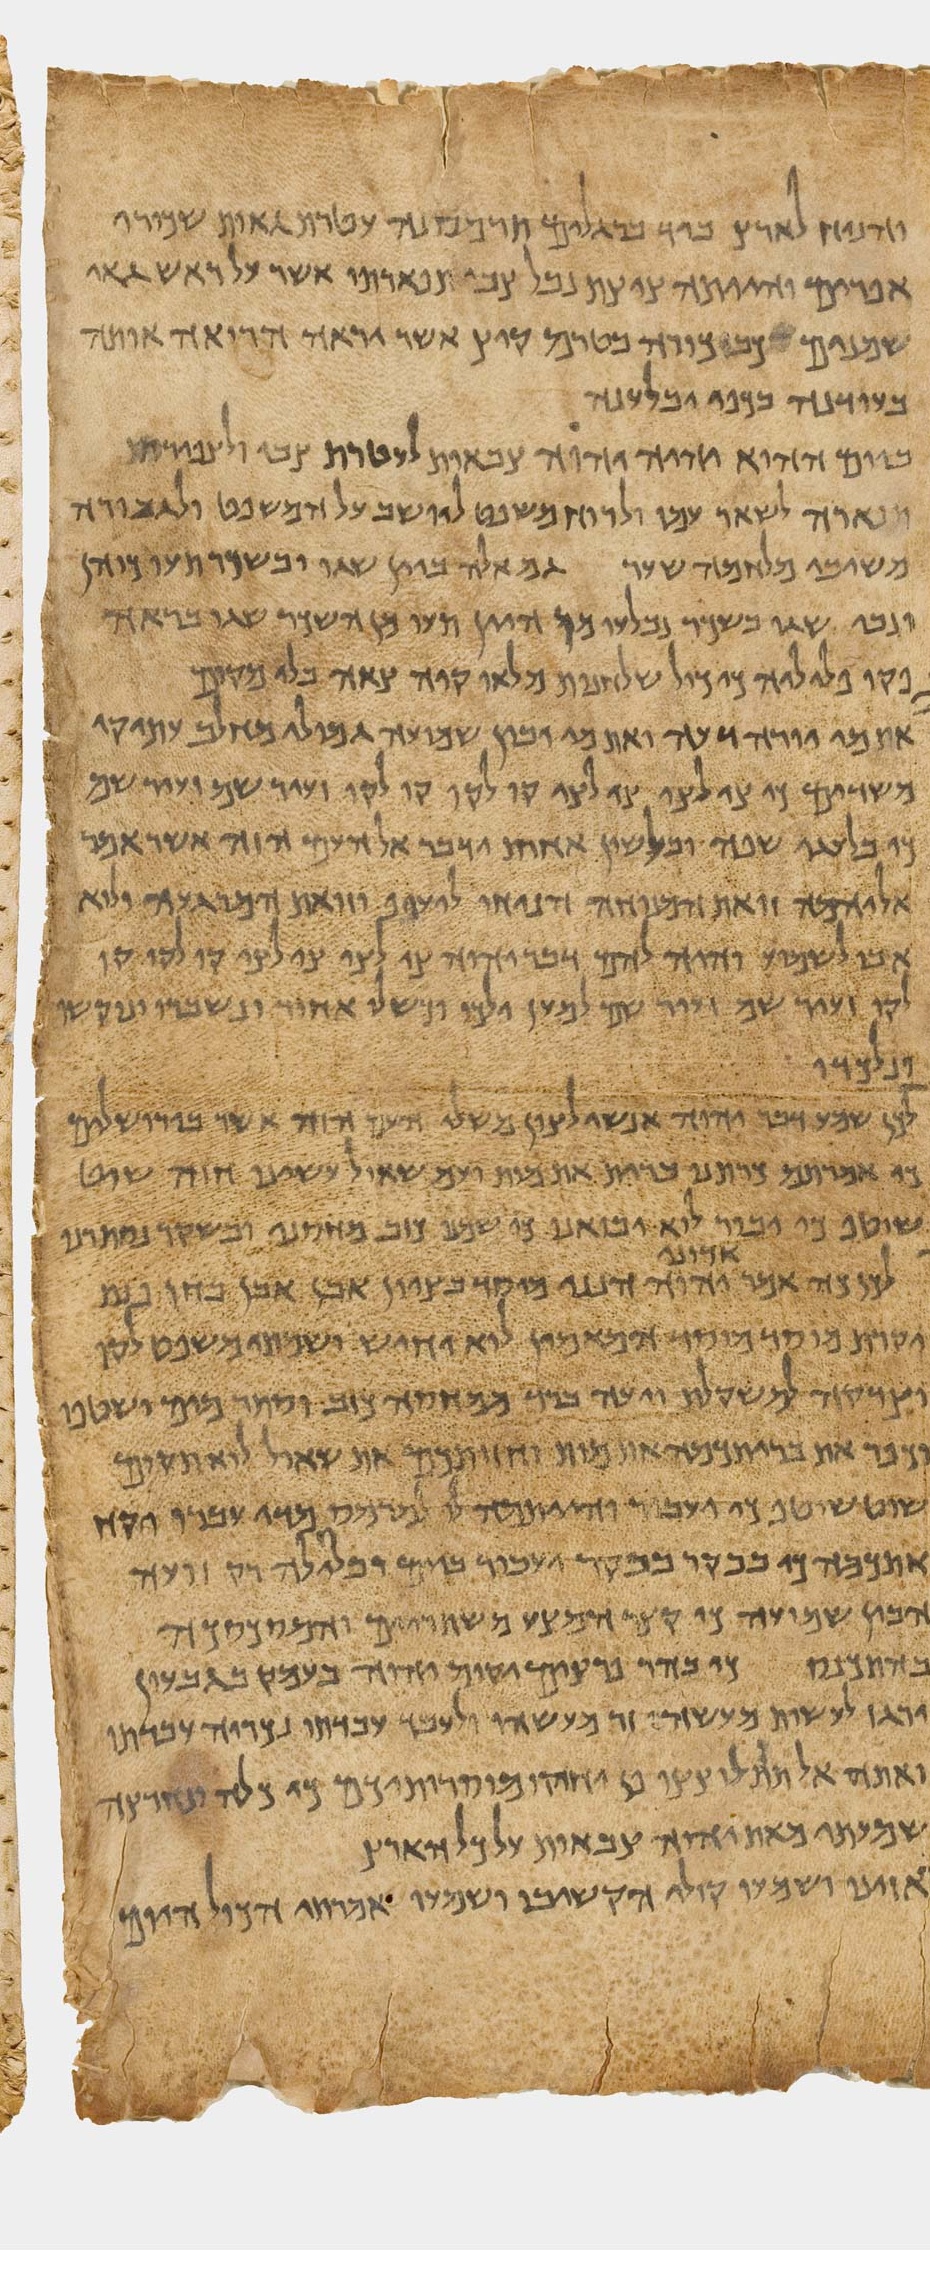 והניח לארץ ביד ברגלים תרמסנה עטרת גאות שכורי
אפרים והייתה ציצת נבל צבי תפארתו אשר על ראש גאי
שמנים כבכורה בטרם קיץ אשר יראה הרואה אותה
בעודנה בכפו יבלענה
ביום ההוא יהיה יהוה צבאות לעטרת צבי ולצפירת
תפארה לשאר עמו ולרוח משפט ליושב על המשפט ולגבורה
משיבי מלחמה שער גמ אלה ביין שגו ובשכר תעו כוהן
ונבי שגו בשכר נבלעו מן היין תעו מן השכר שגו בראה
פקו פלליה כי כול שלחנות מלאו קיה צאה בלי מקום
את מי יורה דעה ואת מי יבין שמועה גמולי מחלב עתיקי
משדים כי צי לצי צי לצי קו לקו קו לקו זעיר שמ זעיר שמ
כי בלעגי שפה ובלשון אחרת ידבר אל העם הזה אשר אמר
אליהמה זואת המנוחה הניחו לעיף וזואת המרגעה ולוא
אבו לשמוע והיה להם דבר יהוה צי לצי צי לצי קו לקו קו
לקו זעיר שמ זעיר שם למען ילכו וכשלו אחור ונשברו ונוקשו
ונלכדו
לכן שמעו דבר יהוה אנשי לצון משלי העם הזה אשר בירושלים
כי אמרתמ כרתנו ברית את מות ועמ שאול עשינו חוזה שוט
שוטף כי יעבור לוא יבואנו כי שמנו כזב מחסנו ובשקר נסתרנו
אדוני
לכן כה אמר יהוה הנני מיסד בציון אבן אבן בחן פנת
יקרת מוסד מוסד המאמין לוא יחיש ושמתי משפט לקו
וצדקה למשקלת ויעה ברד מחסה כזב וסתר מים ישטפו
וכפר את בריתכמה את מות וחזותכם את שאול לוא תקום
שוט שוטף כי יעבור והייתמה לו למרמס מדי עוברו יקח
אתכמה כי בבקר בבקר יעבור ביום ובלילה רק זועה
הבין שמועה כי קצר המצע משתררים והמסכה
כהתכנס כי כהר פרצים יקום יהוה כעמק בגבעון
ירגז לעשות מעשוהי זר מעשהו ולעבד עבדתו נכריה עבדתו
ואתה אל תתלוצצו פן יחזקו מוסריכם כי כלה ונחרצה
שמעתי מאת יהוה צבאות על כל הארץ
האזינו ושמעו קולי הקשיבו ושמעו אמרתי הכול היום